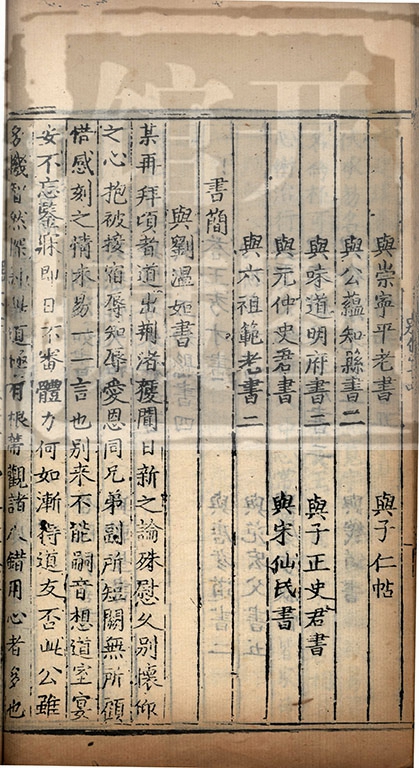 與崇寧平老書 與子仁帖
與公蘊知縣書二
與味道明府書二 與子正史君書
與元仲史君書 與宋仙氏書
與六祖範老書二
書簡
與劉溫如書
某再拜頃者道出荆渚獲聞日新之論殊慰久別懷仰
之心抱被接宿辱知辱愛恩同兄弟副所短闕無所顧
惜感刻之情未易一一言也別來不能嗣音想道室宴
安不忘鑒寐即日不審體力何如漸得道友否此公雖
多機智然深利此道極有根蔕觀諸人錯用心者多也